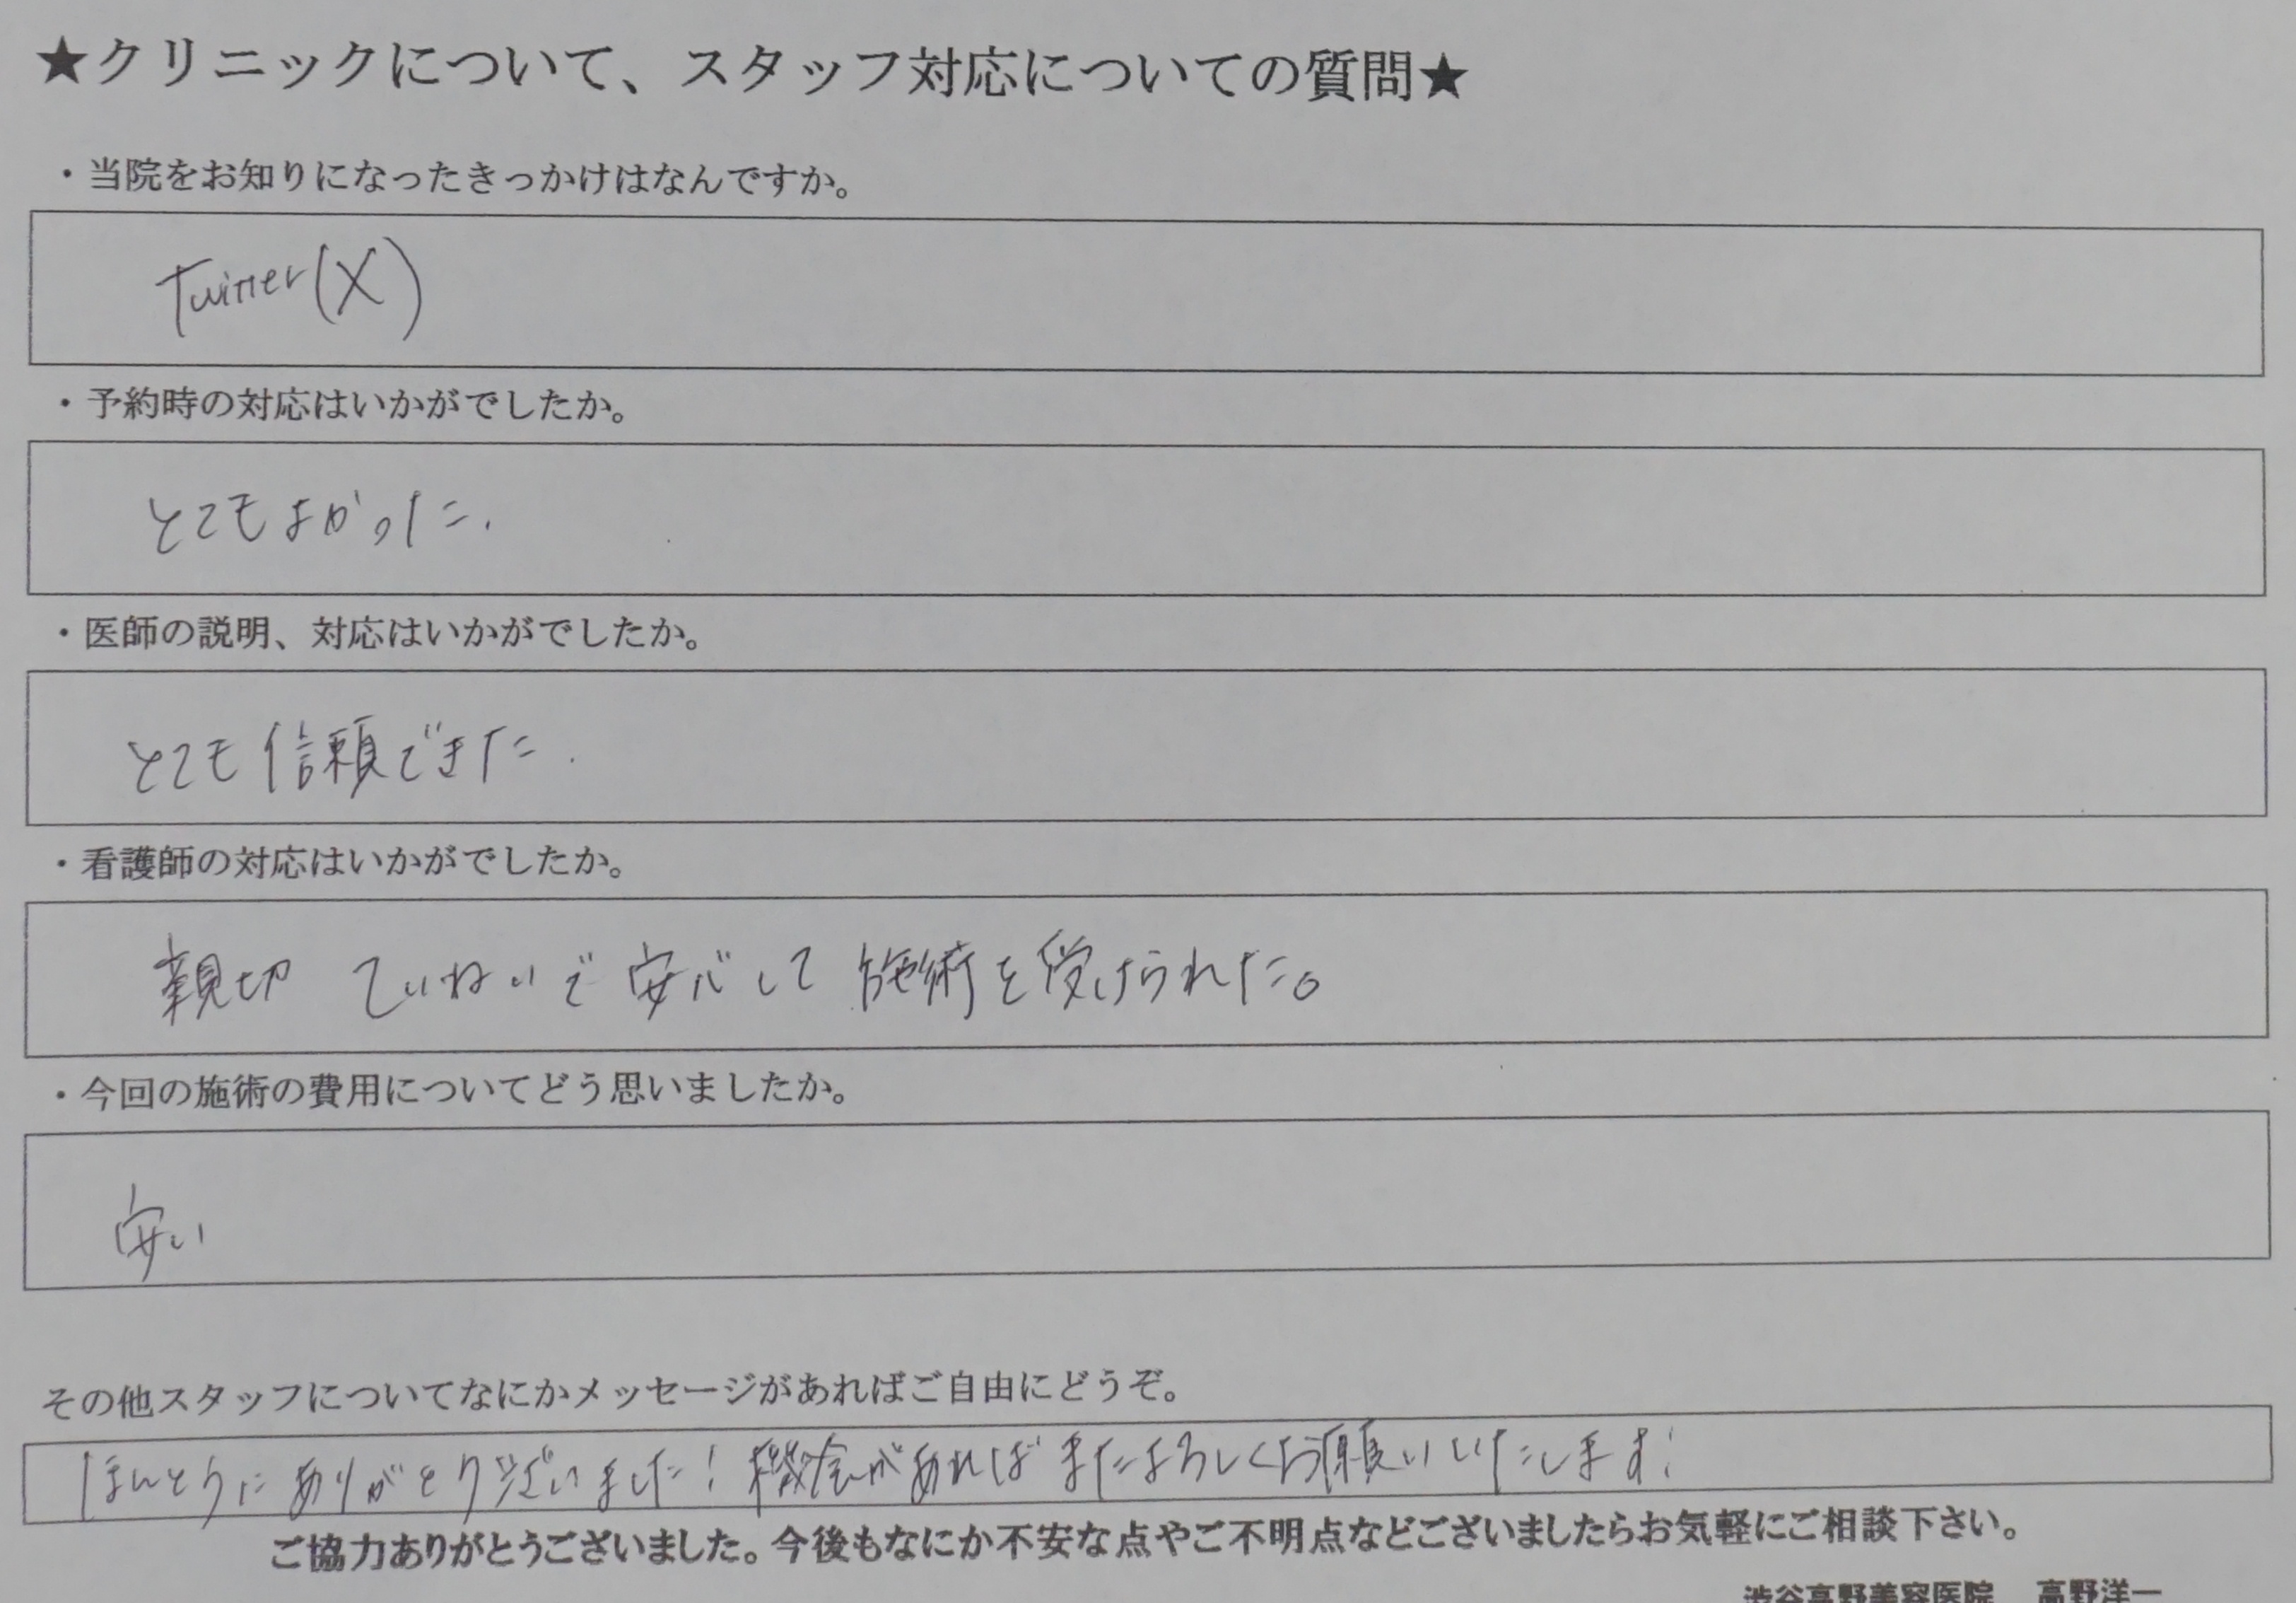 ★クリニックについて、スタッフ対応についての質問★
・当院をお知りになったきっかけはなんですか。
Twitter(X)
・予約時の対応はいかがでしたか。
とてもよかった.
・医師の説明、対応はいかがでしたか。
とても信頼できた.
・看護師の対応はいかがでしたか。
親切 ていねいで安心して施術を受けられた。
・今回の施術の費用についてどう思いましたか。
安い
その他スタッフについてなにかメッセージがあればご自由にどうぞ。
ほんとうにありがとうございました!機会があればまたよろしくお願いいたします!
ご協力ありがとうございました。今後もなにか不安な点やご不明点などございましたらお気軽にご相談下さい。
渋谷高野美容医院 高野洋一